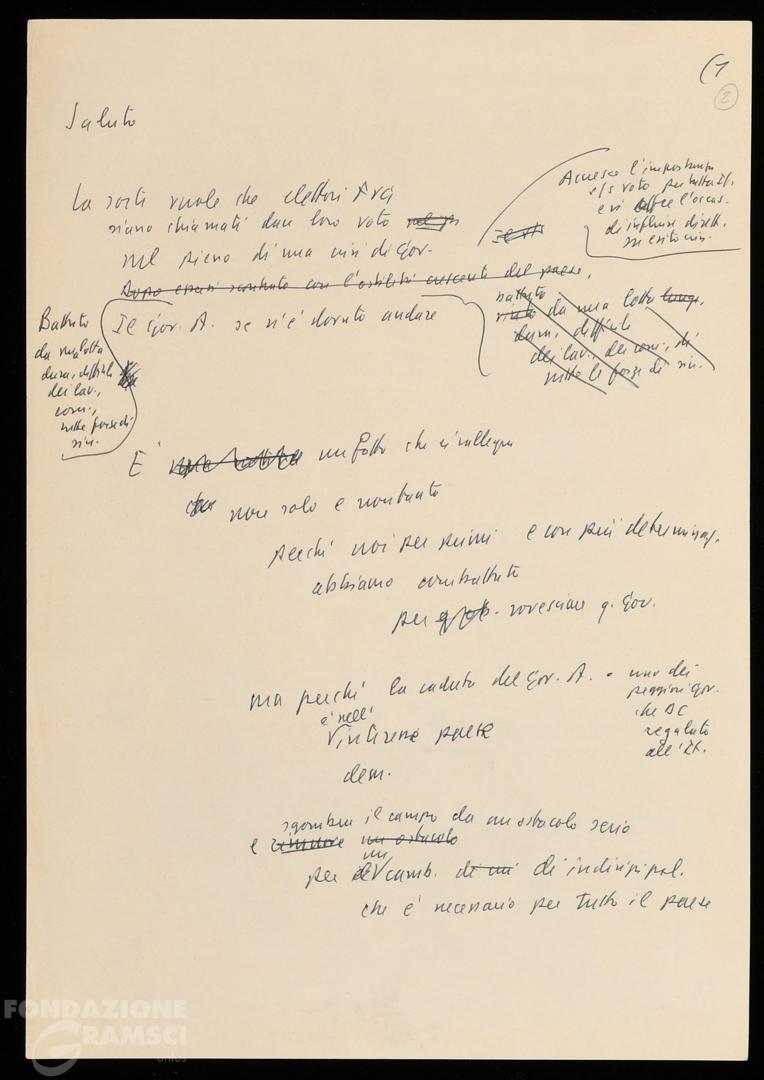 (1
2
Saluto
La sorte vuole che elettori
siano chiamati dare loro voto
nel pieno di una crisi di Gov.
Accresce l'importanza
voto per tutta It.
e vi offre l'occas.
di influire dirett.
su esito crisi.
Dopo essersi scontrato con l'ostilità crescente del paese,
Il Gov. A. se n'è dovuto andare
battuto
da una lotta
dura, difficile
dei lav., dei com., di
tutte le forze di sin.
Battuto
da una lotta
dura, difficile
dei lav.,
com.,
tutte forze di
sin.
È un fatto che ci rallegra
non solo e non tanto
perché noi per primi e con più determinaz.
abbiamo combattuto
per rovesciare q. Gov.
ma perché la caduta del Gov. A. - uno dei
peggiori gov.
che DC
regalato
all'It.
è nell'
interesse paese
dem.
sgombra il campo da un ostacolo serio
e rimuove un ostacolo
per un camb. di indirizzi pol.
che è necessario per tutto il paese
FONDAZIONE
GRAMSCI
onlus